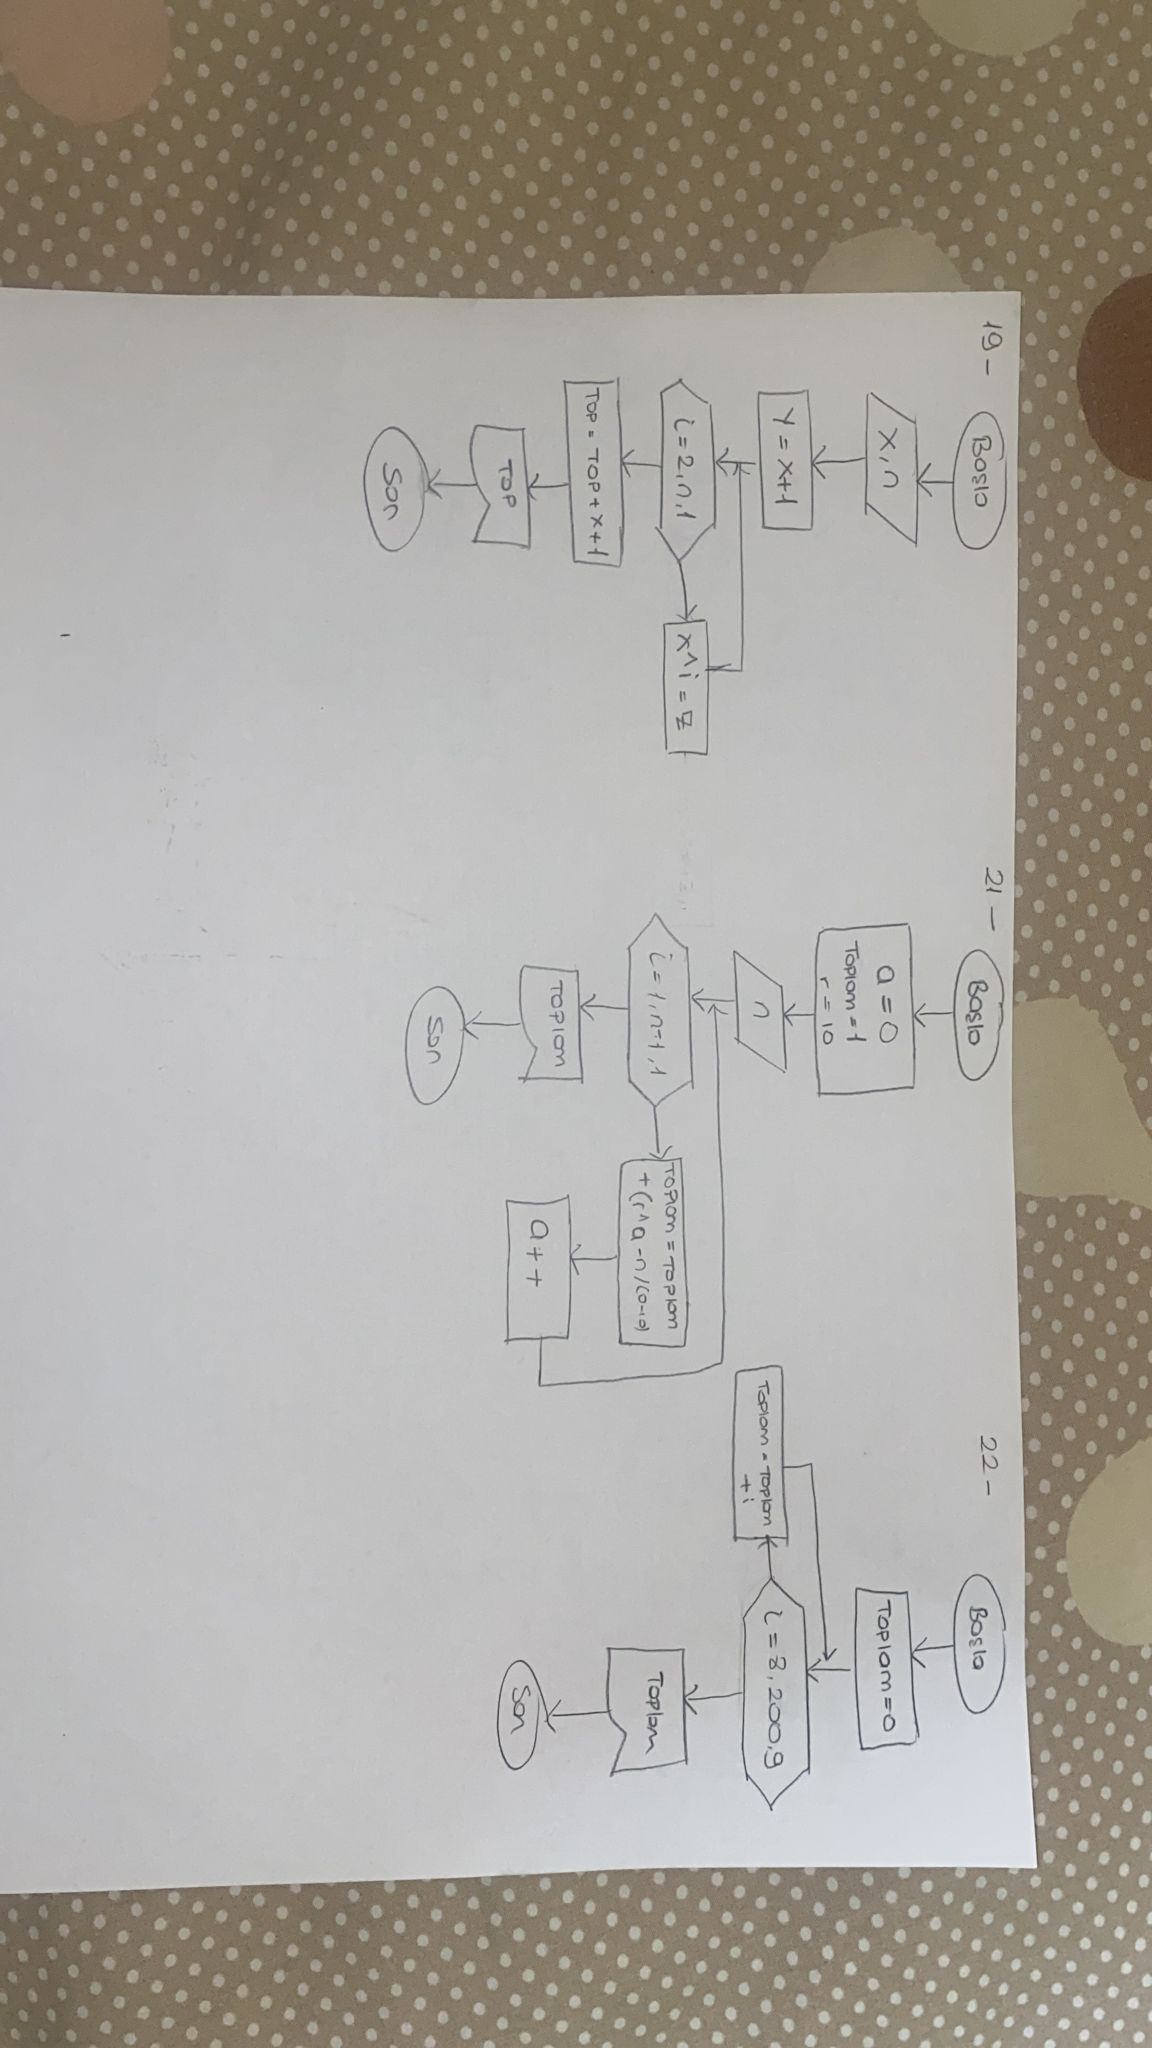 19-
Başla
x,n
Y = x+1
i = 2,n,1
x^i = z
TOP = TOP + x+1
TOP
Son
21-
Başla
a = 0
Toplam = 1
r = 10
n
i = 1,n-1,1
TOPlam = TOPlam
+ (r^a - n/(0-10)
a++
TOPlam
Son
22-
Başla
TOPlam = 0
i = 8,200,9
Toplam = TOPlam
+i
TOPlam
Son